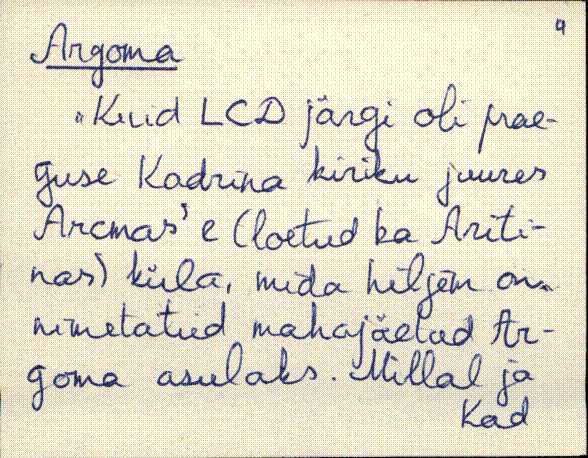 4
Argoma
„Kuid LCD järgi oli prae-
guse Kadrina kiriku juures
Arcmas'e (loetud ka Ariti-
nas) küla, mida hiljem on
nimetatud mahajäetud Ar-
goma asulaks. Millal ja
Kad